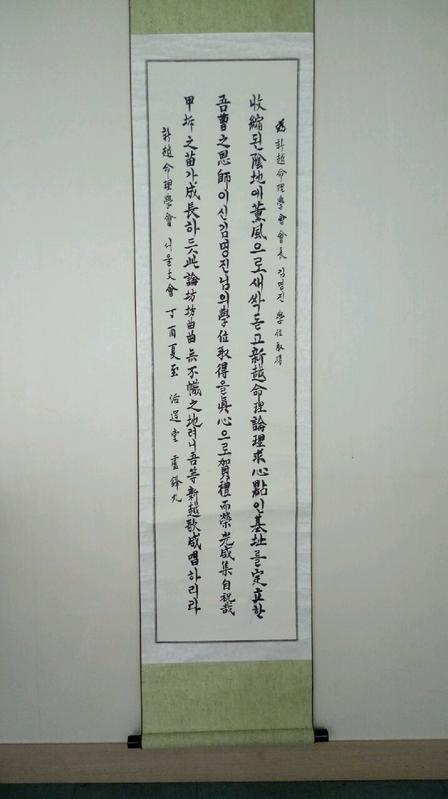 為 新越命理學會會長 김명진 學位取得
收縮된 陰地에 薰風으로 새싹 돋고 新越命理論理求心點인 基址를 定立한
吾曹之恩師이신 김명진님의 學位取得을 眞心으로 賀禮而榮光咸集自祝哉
甲坼之苗가 成長하듯 此論坊坊曲曲 無不幟之地려니 吾等新越歌咸唱하리라
新越命理學會 서울支會 丁酉夏至